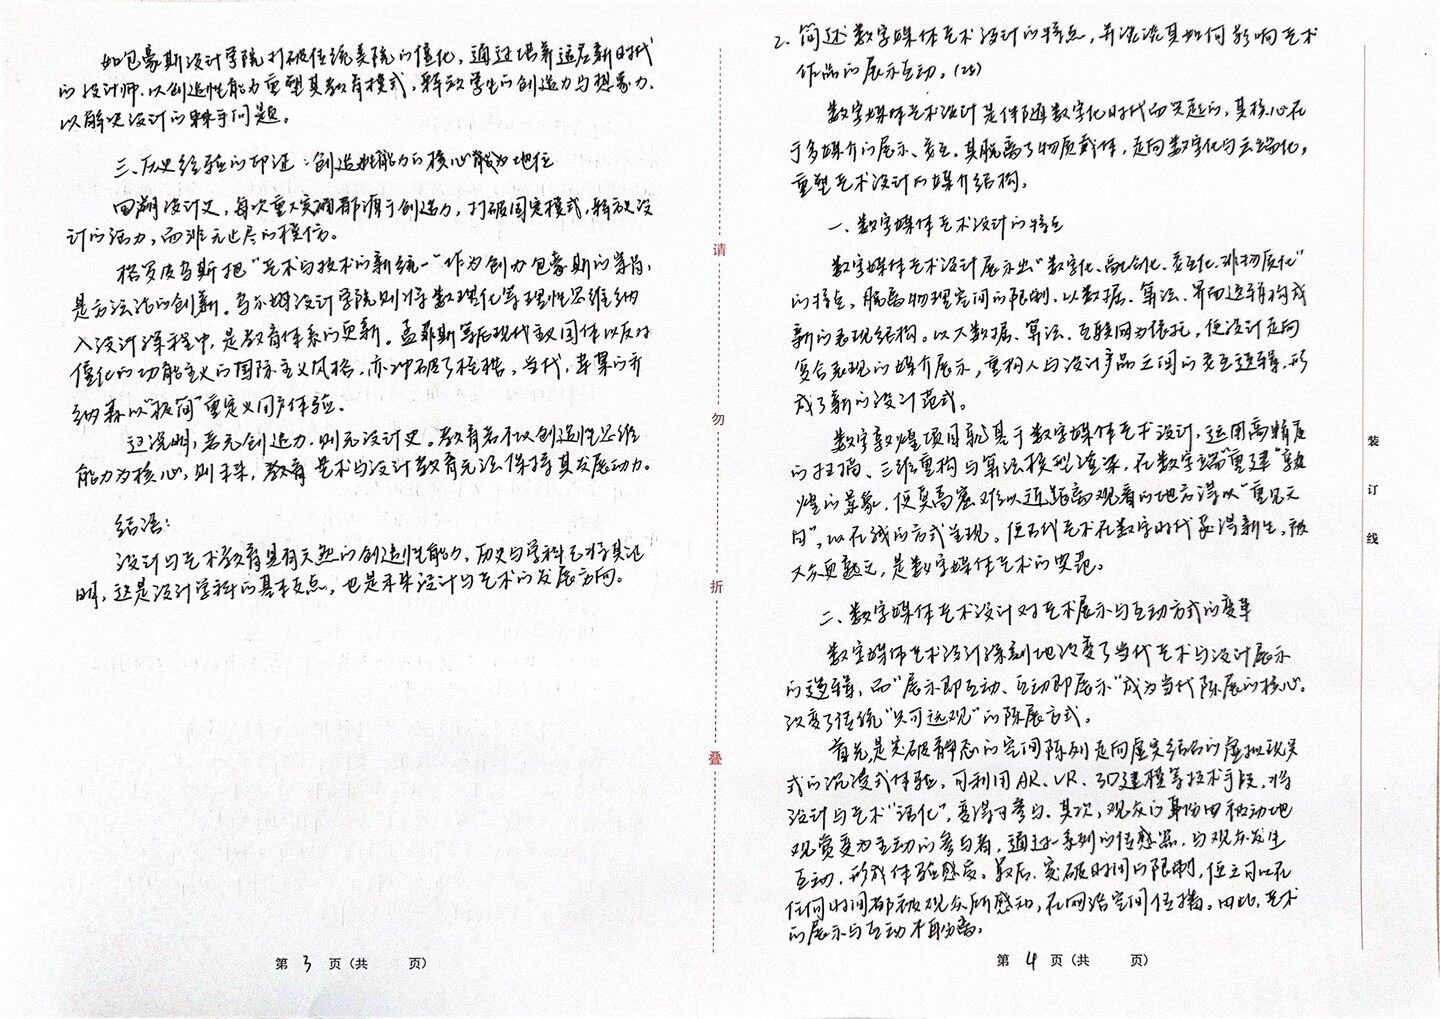 如包豪斯设计学院打破传统美院的僵化，通过培养适应新时代
的设计师，以创造性能力重塑其教育模式，释放学生的创造力与想象力，
以解决设计的棘手问题。
三、历史经验的印证：创造性能力的核心地位
回溯设计史，每次重大突破都源于创造力，打破固定模式，释放设
计的活力，而非无止尽的模仿。
格罗皮乌斯把“艺术与技术的新统一”作为创办包豪斯的宗旨，
是方法论的创新。乌尔姆设计学院则将数理化等理性思维纳
入设计课程中，是教育体系的更新。孟菲斯等后现代主义团体以反对
僵化的功能主义的国际主义风格，亦冲破了桎梏，当代，苹果的乔
纳森以“极简”重定义用户体验。
这说明，若无创造力，则无设计史。教育若不以创造性思维
能力为核心，则未来，教育艺术与设计教育无法保持其发展动力。
结语：
设计与艺术教育具有天然的创造性能力，历史与学科已将其证
明，这是设计学科的基本支点，也是未来设计与艺术的发展方向。
第 3 页（共 页）
请
勿
折
叠
2. 简述数字媒体艺术设计的特点，并谈谈其如何影响艺术
作品的展示互动。(25)
数字媒体艺术设计是伴随数字化时代而兴起的，其核心在
于多媒介的展示、交互，其脱离了物质载体，走向数字化与云端化，
重塑艺术设计的媒介结构。
一、数字媒体艺术设计的特点
数字媒体艺术设计展示出“数字化、融合化、交互化、非物质化”
的特点，脱离物理空间的限制，以数据、算法、界面逻辑构成
新的表现结构。以大数据、算法、互联网为依托，使设计走向
复合表现的媒介展示，重构人与设计产品之间的交互逻辑，形
成了新的设计范式。
数字敦煌项目就基于数字媒体艺术设计，运用高精度
的扫描、三维重构与算法模型渲染，在数字端“重建”敦
煌的景象，使莫高窟难以近距离观看的地方得以“重见天
日”，以在线的方式呈现。使古代艺术在数字时代获得新生，被
大众更熟知，是数字媒体艺术的典范。
二、数字媒体艺术设计对艺术展示与互动方式的变革
数字媒体艺术设计深刻地改变了当代艺术与设计展示
的逻辑，而“展示即互动、互动即展示”成为当代陈展的核心。
改变了传统“只可远观”的陈展方式。
首先，是突破静态的空间陈列走向虚实结合的虚拟现实
式的沉浸式体验，可利用AR、VR、3D建模等技术手段，将
设计与艺术“活化”，变得可参与。其次，观众的身份由被动地
观赏变为主动的参与者，通过一系列的传感器，与观众发生
互动，形成体验感受。最后，突破时间的限制，使之可以在
任何时间都被观众所感动，在网络空间传播。因此，艺术
的展示与互动不再分离。
第 4 页（共 页）
装
订
线